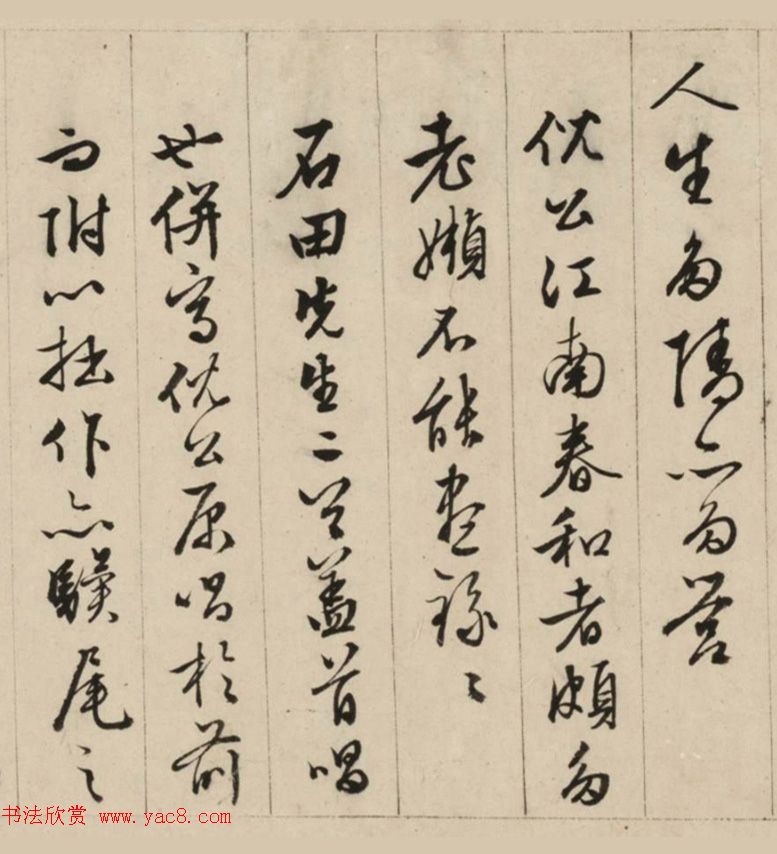 人生多隱亦多營
倪公江南春和者頗多
老嬾不能盡錄〻
石田先生二首蓋首唱
也併寫倪公原唱於前
而附以拙作亦驥尾之
书法欣赏 www.yac8.com